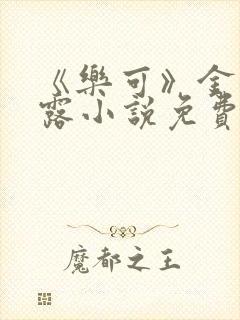 《樂可》金
露小說免費
魔都之王